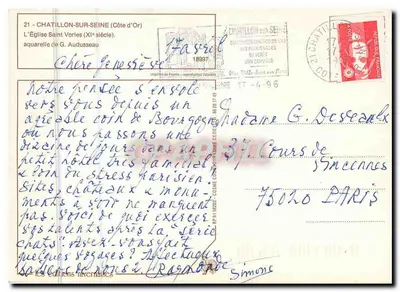 21 - CHATILLON-SUR-SEINE (Côte d'Or)
L'Église Saint Vorles (XIᵉ siècle).
aquarelle de G. Auduteau
17 avril
Chère Geneviève
notre pensée s'envole
vers vous depuis un
agréable coin de Bourgogne
où nous passons une
dizaine de jours dans un
petit hôtel très familial
loin du stress parisien !
Sites, châteaux & monu-
ments à voir ne manquent
pas. Voici de quoi exercer
vos talents après la "série
chats". Avez-vous fait
quelques voyages ? Affectueux
baisers de nous 2. Raymonde
Simone
CHATILLON SUR SEINE
17-4-96
21 CHATILLON
Madame G. Desceaulx
37 Cours de
Vincennes
75020 PARIS